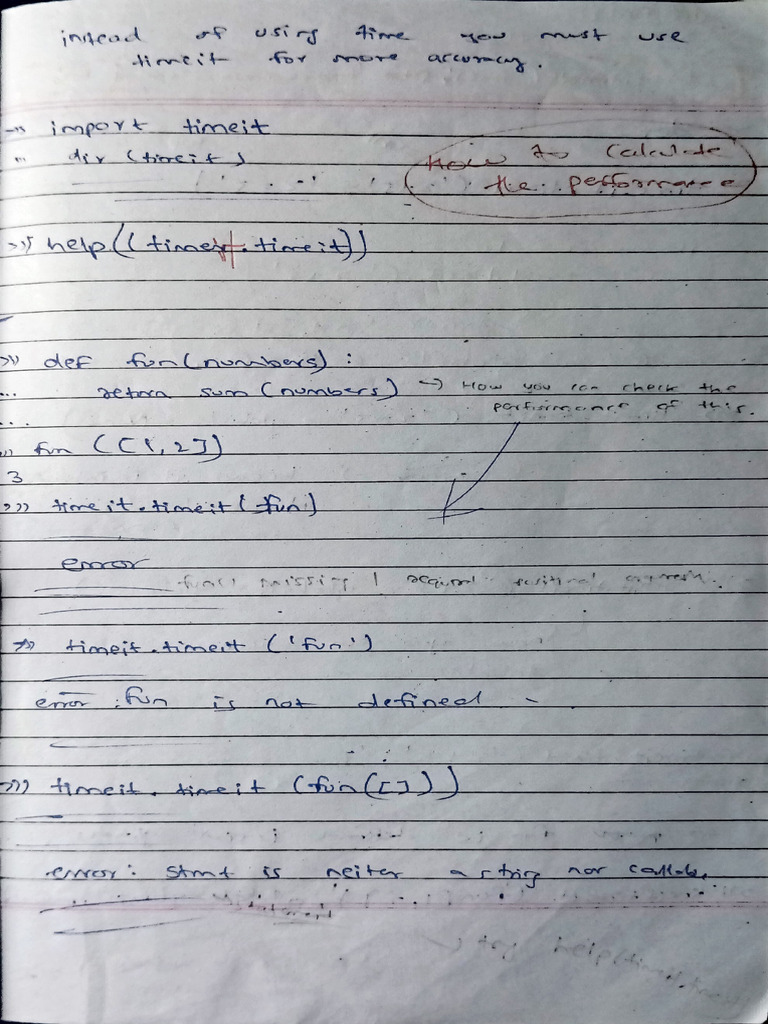 instead of using time you must use
timeit for more accuracy.
>>> import timeit
>>> dir (timeit)
How to calculate
the performance
>>> help((timeit.timeit))
>>> def fun(numbers) :
... return sum (numbers) → How you can check the
performance of this.
...
>>> fun ([1,2])
3
>>> timeit.timeit(fun)
error
missing 1
>>> timeit.timeit ('fun')
error : fun is not defined -
>>> timeit. timeit (fun([]))
error: stmt is neiter a string nor callable.
try help(timeit.